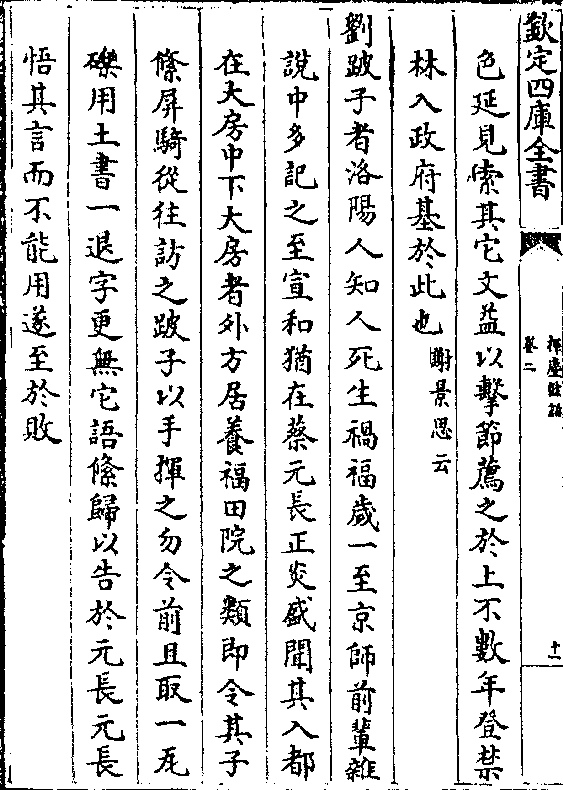 欽定四庫全書
揮麈餘話
卷二
十一
色延見索其它文益以擊節薦之於上不數年登禁
林入政府基於此也謝景思云
劉跛子者洛陽人知人死生禍福歲一至京師前輩雜
說中多記之至宣和猶在蔡元長正炎盛聞其入都
在大房中下大房者外方居養福田院之類即令其子
絛屏騎從往訪之跛子以手揮之勿令前且取一瓦
礫用土書一退字更無它語絛歸以告於元長元長
悟其言而不能用遂至於敗